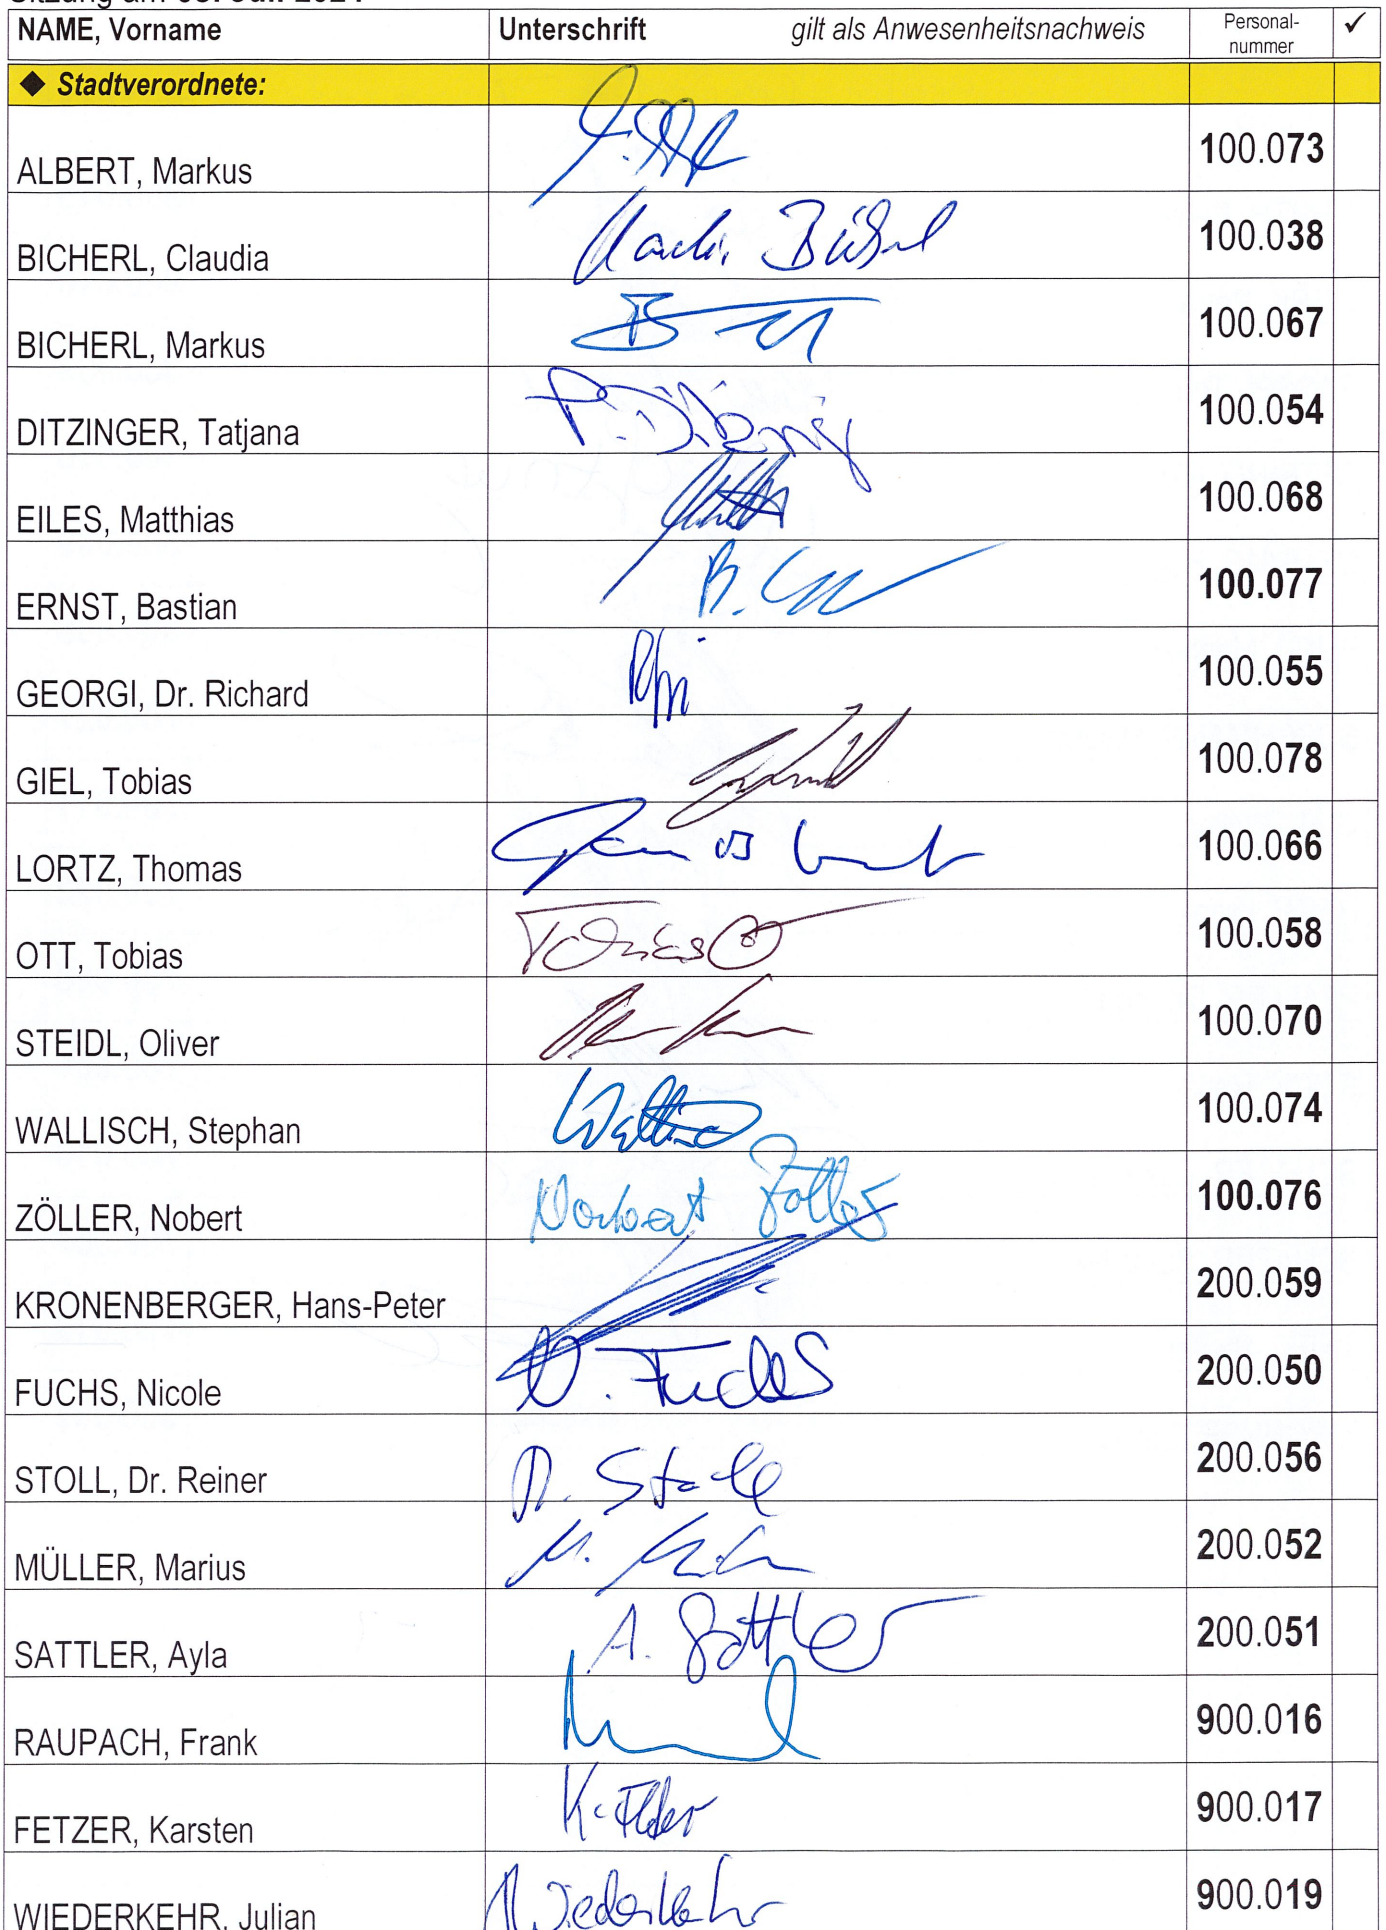 NAME, Vorname Unterschrift gilt als Anwesenheitsnachweis Personal-nummer ✓
◆ Stadtverordnete:
ALBERT, Markus 100.073
BICHERL, Claudia 100.038
BICHERL, Markus 100.067
DITZINGER, Tatjana 100.054
EILES, Matthias 100.068
ERNST, Bastian 100.077
GEORGI, Dr. Richard 100.055
GIEL, Tobias 100.078
LORTZ, Thomas 100.066
OTT, Tobias 100.058
STEIDL, Oliver 100.070
WALLISCH, Stephan 100.074
ZÖLLER, Nobert Norbert Zöller 100.076
KRONENBERGER, Hans-Peter 200.059
FUCHS, Nicole N. Fuchs 200.050
STOLL, Dr. Reiner R. Stoll 200.056
MÜLLER, Marius 200.052
SATTLER, Ayla A. Sattler 200.051
RAUPACH, Frank 900.016
FETZER, Karsten 900.017
WIEDERKEHR, Julian Wiederkehr 900.019